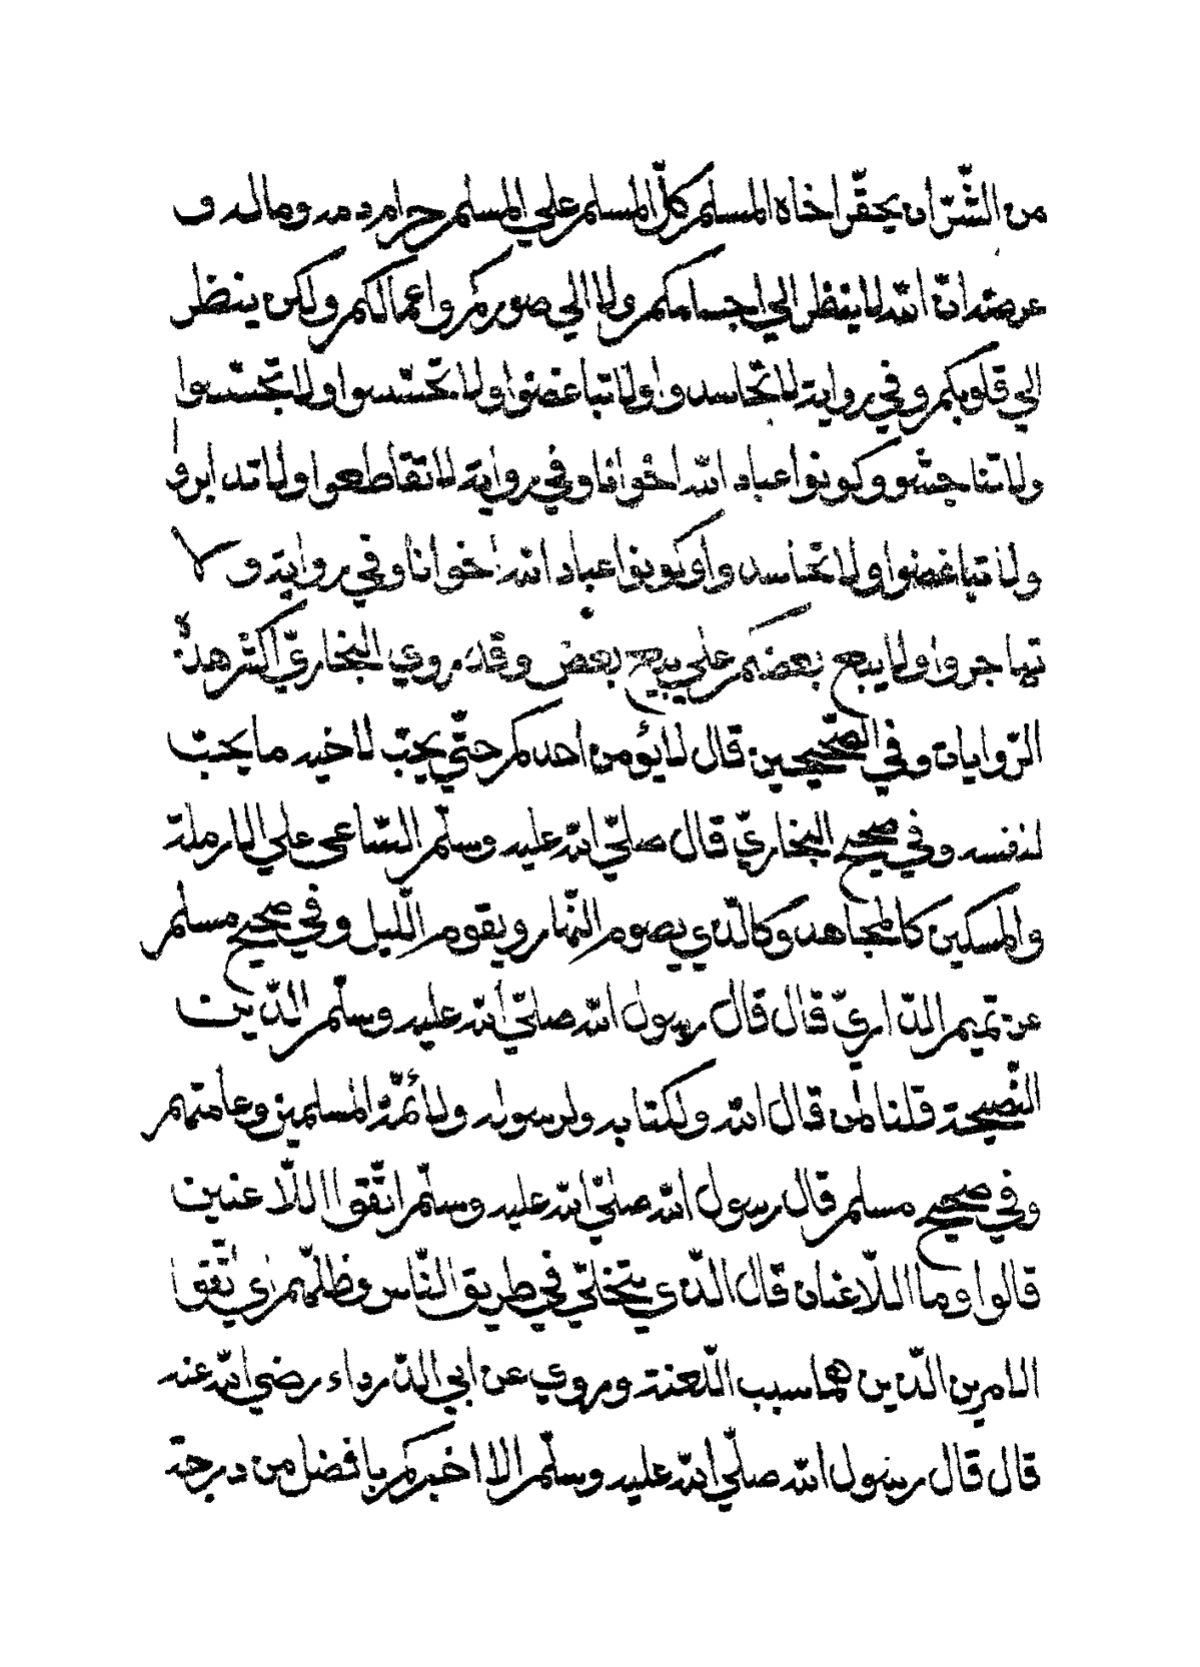 من الشّرّ ان يحقّر اخاه المسلم كلّ المسلم علي المسلم حرام دمه وماله و
عرضه ان الله لا ينظر الي اجسامكم ولا الي صوركم واعمالكم ولكن ينظر
الي قلوبكم وفي رواية لا تحاسدوا ولا تباغضوا ولا تحسّسوا ولا تجسّسوا
ولا تناجشوا وكونوا عباد الله اخوانا وفي رواية لا تقاطعوا ولا تدابروا
ولا تباغضوا ولا تحاسدوا وكونوا عباد الله اخوانا وفي رواية ولا
تهاجروا ولا يبع بعضكم علي بيع بعض وقد روي البخاريّ اكثر هذه
الرّوايات وفي الصّحيحين قال لا يؤمن احدكم حتّي يحبّ لاخيه ما يحبّ
لنفسه وفي صحيح البخاريّ قال صلّي الله عليه وسلّم السّاعي علي الارملة
والمسكين كالمجاهد وكالّذي يصوم النّهار ويقوم اللّيل وفي صحيح مسلم
عن تميم الدّاريّ قال قال رسول الله صلّي الله عليه وسلّم الدّين
النّصيحة قلنا لمن قال الله ولكتابه ولرسوله ولائمّة المسلمين وعامتهم
وفي صحيح مسلم قال رسول الله صلّي الله عليه وسلّم اتّقوا اللّاعنين
قالوا وما اللّاعنان قال الّذي يتخلّي في طريق النّاس وظلّهم اي اتّقوا
الامرين الّذين هما سبب اللّعنة وروي عن ابي الدّرداء رضي الله عنه
قال قال رسول الله صلّي الله عليه وسلّم الا اخبركم بافضل من درجة